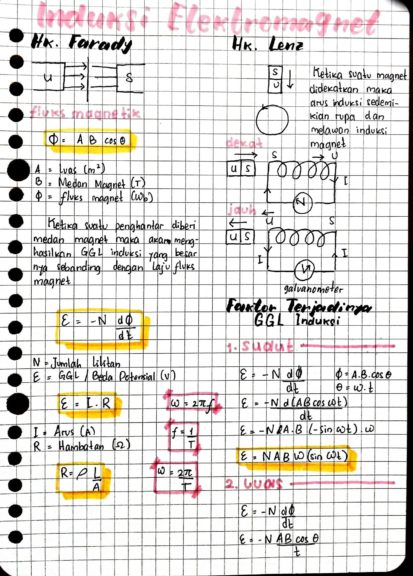 Induksi Elektromagnet
Hk. Farady
U
S
fluks magnetik
Φ = A B cos θ
A = Luas (m²)
B = Medan Magnet (T)
Φ = fluks magnet (Wb)
Ketika suatu penghantar diberi
medan magnet maka akan meng-
hasilkan GGL induksi yang besar
nya sebanding dengan laju fluks
magnet
ε = -N dΦ/dt
N = Jumlah lilitan
ε = GGL / Beda Potensial (V)
ε = I · R
ω = 2πf
I = Arus (A)
R = Hambatan (Ω)
f = 1/T
R = ρ L/A
ω = 2π/T
Hk. Lenz
S
U
Ketika suatu magnet
didekatkan maka
arus induksi sedemi-
kian rupa dan
melawan induksi
magnet
dekat
S U
U S
I
N
jauh
U S
U S
I I
galvanometer
Faktor Terjadinya
GGL Induksi
1. Sudut
ε = -N dΦ/dt
Φ = A.B.cos θ
θ = ω.t
ε = -N d(AB cos ωt)/dt
ε = -N A.B (-sin ωt) . ω
ε = N A B ω (sin ωt)
2. Luas
ε = -N dΦ/dt
ε = -N AB cos θ/t